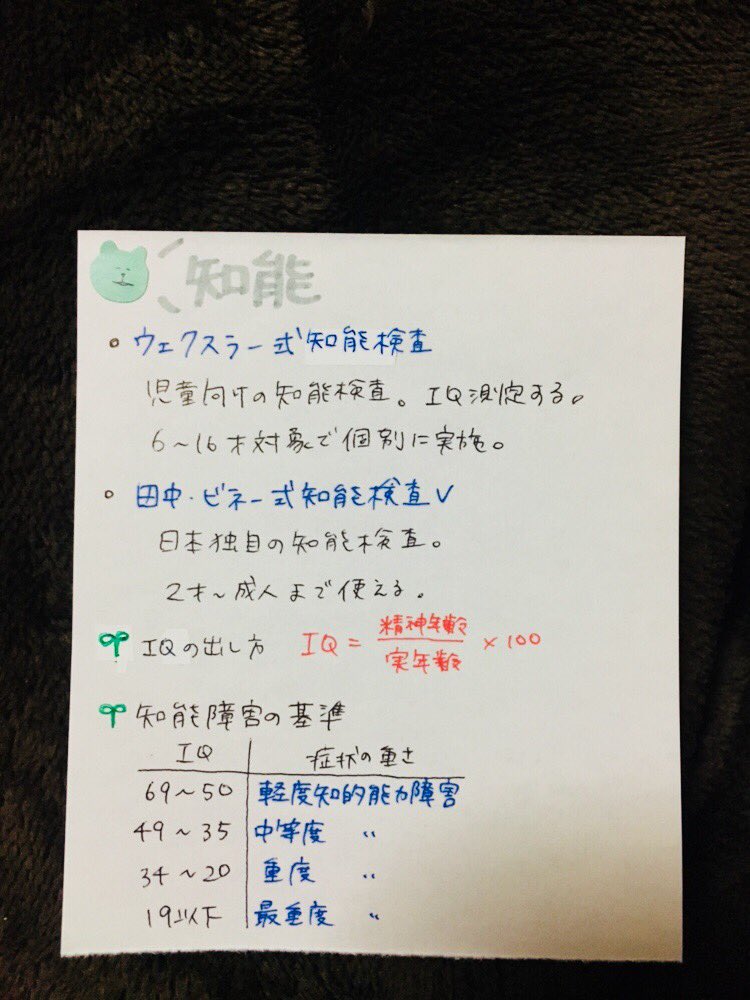 知能
ウェクスラー式知能検査
児童向けの知能検査。IQ測定する。
6~16才対象で個別に実施。
田中・ビネー式知能検査V
日本独自の知能検査。
2才~成人まで使える。
IQの出し方 IQ = 精神年齢/実年齢 × 100
知能障害の基準
IQ 症状の重さ
69~50 軽度知的能力障害
49~35 中等度 〃
34~20 重度 〃
19以下 最重度 〃